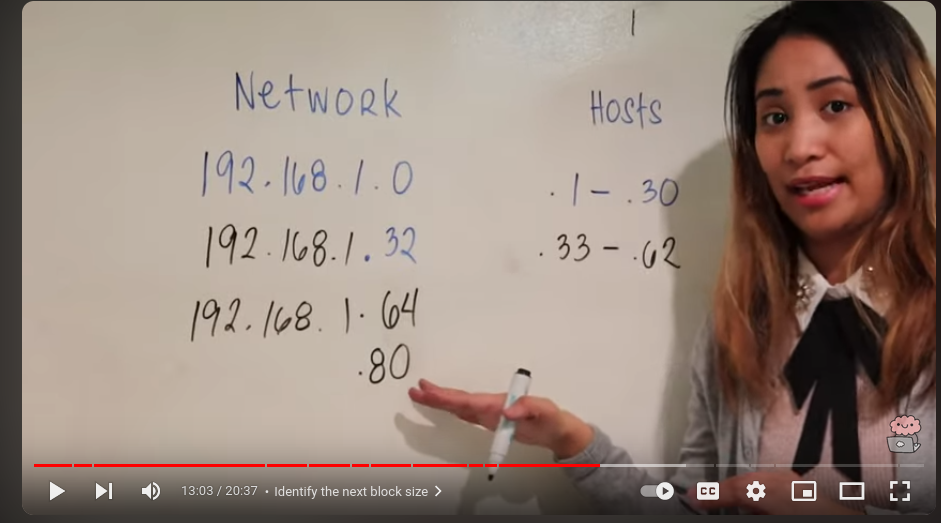 1
Network Hosts
192.168.1.0 .1 - .30
192.168.1.32 .33 - .62
192.168.1.64
.80
13:03 / 20:37 • Identify the next block size >
CC